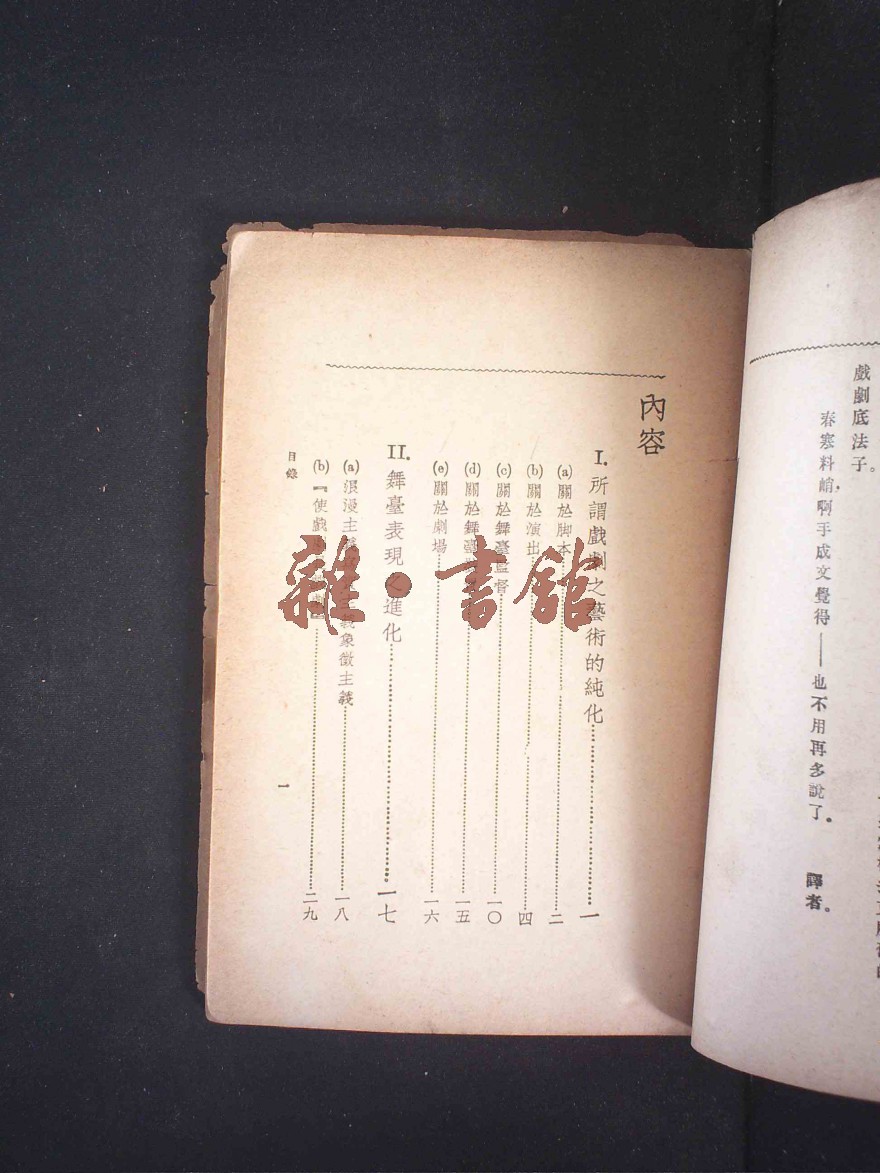 戲劇底法子。
春寒料峭，啊手成文覺得——也不用再多說了。
譯者。
內容
I. 所謂戲劇之藝術的純化………一
(a) 關於脚本………二
(b) 關於演出………四
(c) 關於舞臺監督………一〇
(d) 關於舞臺………一五
(e) 關於劇場………一六
II. 舞臺表現之進化………一七
(a) 浪漫主義 義象徵主義………一八
(b) 『使戲 劇………二九
目錄
一
雜·書館